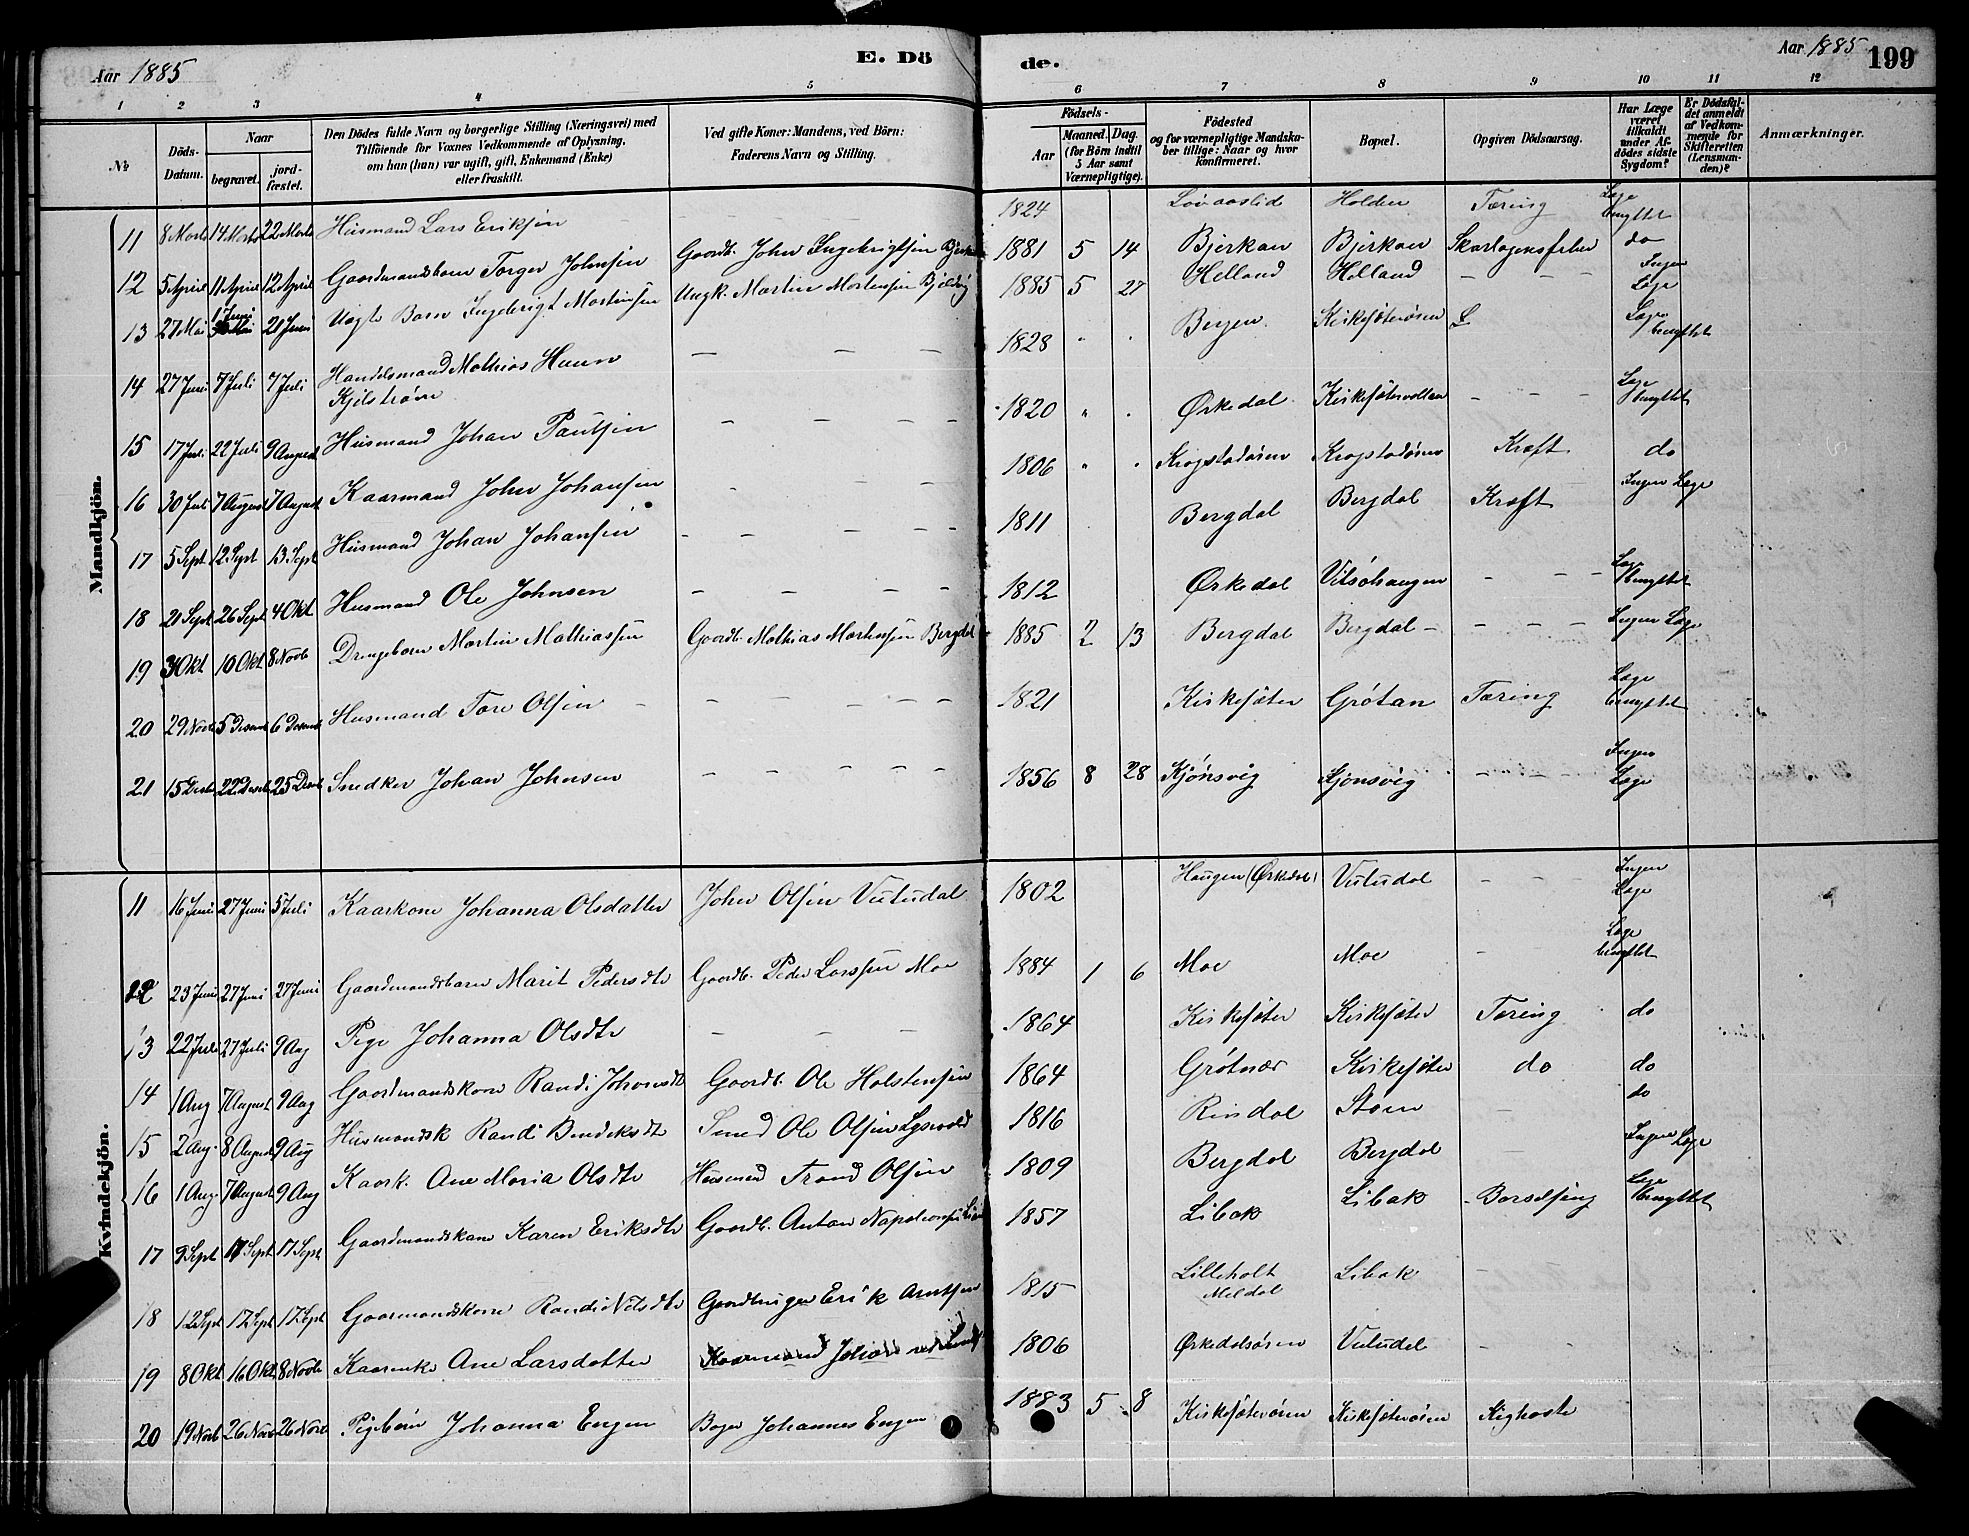 Aar 1885
E. Dö
de.
Aar 1885
199
1 2 3 4 5 6 7 8 9 10 11 12
№
Döds-Datum.
Naar
begravet.
jord-fæstet.
Den Dödes fulde Navn og borgerlige Stilling (Næringsvei) med Tilföiende for Voxnes Vedkommende af Oplysning, om han (hun) var ugift, gift, Enkemand (Enke) eller fraskilt.
Ved gifte Koner: Mandens, ved Börn: Faderens Navn og Stilling.
Födsels-
Aar
Maaned. Dag.
(for Börn indtil 5 Aar samt Værnepligtige).
Födested og for værnepligtige Mandskaber tillige: Naar og hvor konfirmeret.
Bopæl.
Opgiven Dödsaarsag.
Har Læge været tilkaldt under Afdödes sidste Sygdom?
Er Dödsfaldet anmeldt af Vedkommende for Skifteretten (Lensmanden)?
Anmærkninger.
Mandkjön.
11 8 Marts 14 Marts 22 Marts Husmand Lars Eriksen 1824 Holden Tæring Læge benyttet
12 5 April 11 April 12 April Gaardmandsbarn Torger Johnsen Gaardb. John Ingebrigtsen 1881 5 14 Bjerkan Bjerkan Skarlagensfeber do
13 27 Mai 1 Juni 21 Juni Uægte Barn Ingebrigt Martinsen Ungk. Martin Mortensen 1885 5 27 Helland Helland – – – Ingen Læge
14 27 Juni 7 Juli 7 Juli Handelsmand Mathias Kjelstrøm – – – 1828 Bergen Kirkesæterøren Læge benyttet
15 17 Juli 22 Juli 9 August Husmand Johan Paulsen – – – – 1820 Ørkedal – – – Læge benyttet
16 30 Juli 7 August 7 August Kaarmand John Johansen – – – 1806 Krogstadøren Krogstadøren Kræft do
17 5 Sept 12 Sept 13 Sept Husmand Johan Johansen – – – – – 1811 Bergdal Bergdal Kræft Ingen Læge
18 21 Sept 26 Sept 4 Okt Husmand Ole Johnsen – – – – – 1812 Ørkedal – – – Læge benyttet
19 3 Okt 10 Okt 8 Novb Drengebarn Martin Mathiassen Gaardb. Mathias Mortensen Bergdal 1885 2 13 Bergdal Bergdal – – – – Ingen Læge
20 29 Novb 5 Decemb 6 Decemb Husmand Tore Olsen – – – – – 1821 Kirkesæter Grøtan Tæring Læge benyttet
21 15 Decb 22 Decb 25 Decb Snedker Johan Johnsen – – – – – 1856 8 28 Kjønsvig Kjønsvig – – – Ingen Læge
Kvindekjön.
11 16 Juni 27 Juni 5 Juli Kaarkone Johanna Olsdatter John Olsen Vutudal 1802 Haugen (Ørkedal) Vutudal – – – Ingen Læge
12 23 Juni 27 Juni 27 Juni Gaardmandsbarn Marit Pedersdtr Gaardb. Peder Larssen Moe 1884 1 6 Moe Moe – Læge benyttet
13 22 Juli 27 Juli 9 Aug Pige Johanna Olsdtr – – – 1864 Kirkesæter Kirkesæter Tæring do
14 1 Aug 7 August 9 Aug Gaardmandskone Randi Johnsdtr Gaardb. Ole Holstensen 1864 Grøtnær Kirkesæter do do
15 2 Aug 8 August 9 Aug Husmandsk Randi Bendeksdtr Smed Ole Olsen 1816 Rindal Støen – do
16 1 Aug. 7 August 9 Aug Kaark. Ane Maria Olsdtr Husmand Trond Olsen 1809 Bergdal Bergdal – Ingen Læge
17 9 Sept 17 Sept 17 Sept Gaardmandskone Karen Eriksdtr Gaardb. Anton Napoleonsen 1857 Libak Libak Barselseng Læge benyttet
18 12 Sept 17 Sept 17 Sept Gaarmandskone Randi Nilsdtr Gaardbruger Erik Arntsen 1815 Lilleholt Meldal Libak –
19 8 Okt 16 Okt 8 Novb Kaarenke Ane Larsdatter Kaarmand Johan 1806 Ørkedalsøren Vutudal – –
20 19 Novb 26 Nov 26 Novb Pigebarn Johanna Engen Bager Johannes Engen 1883 5 8 Kirkesæterøren Kirkesæterøren Kighoste